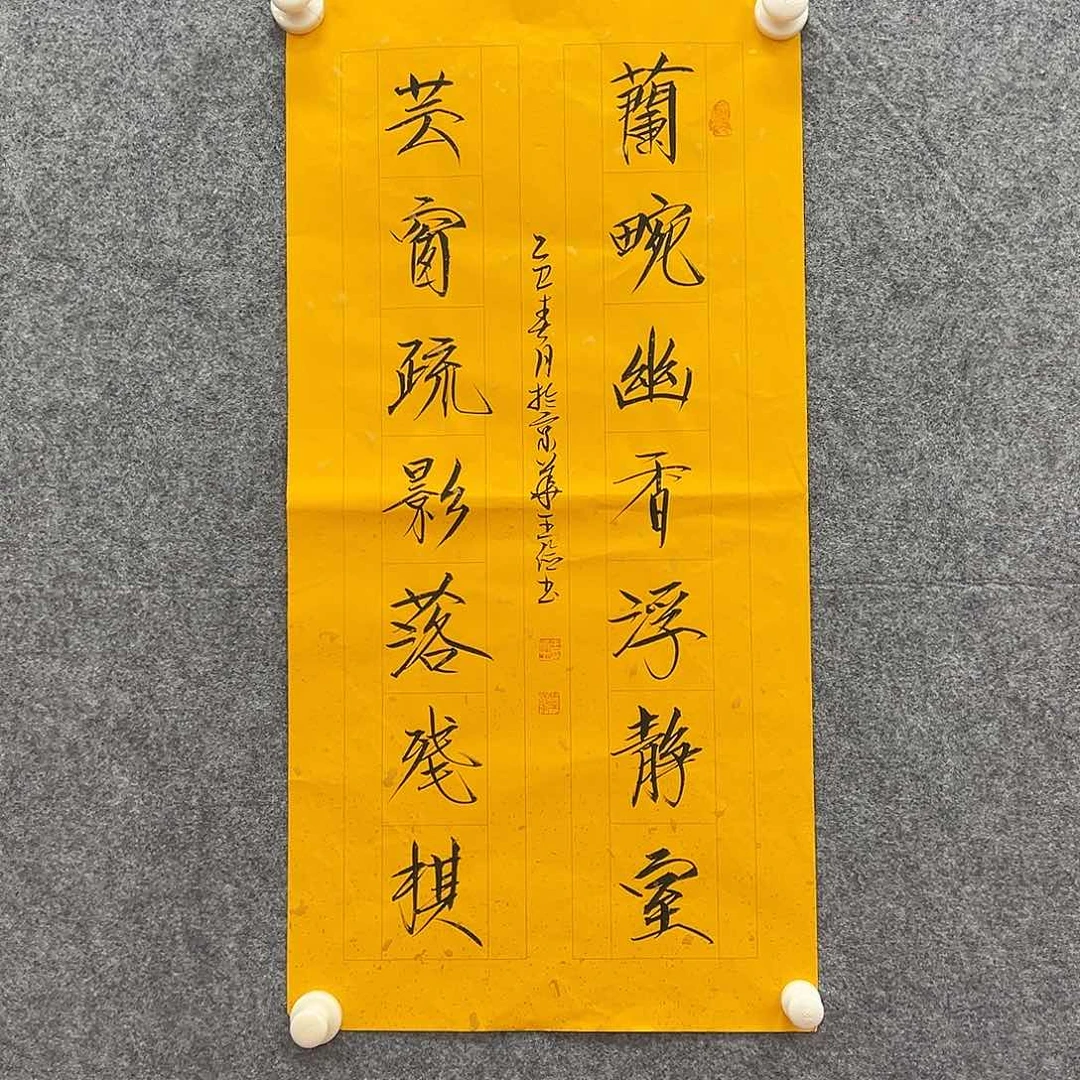 蘭畹幽香浮靜室
芸窗疏影落殘棋
乙巳春月於京華王俭书